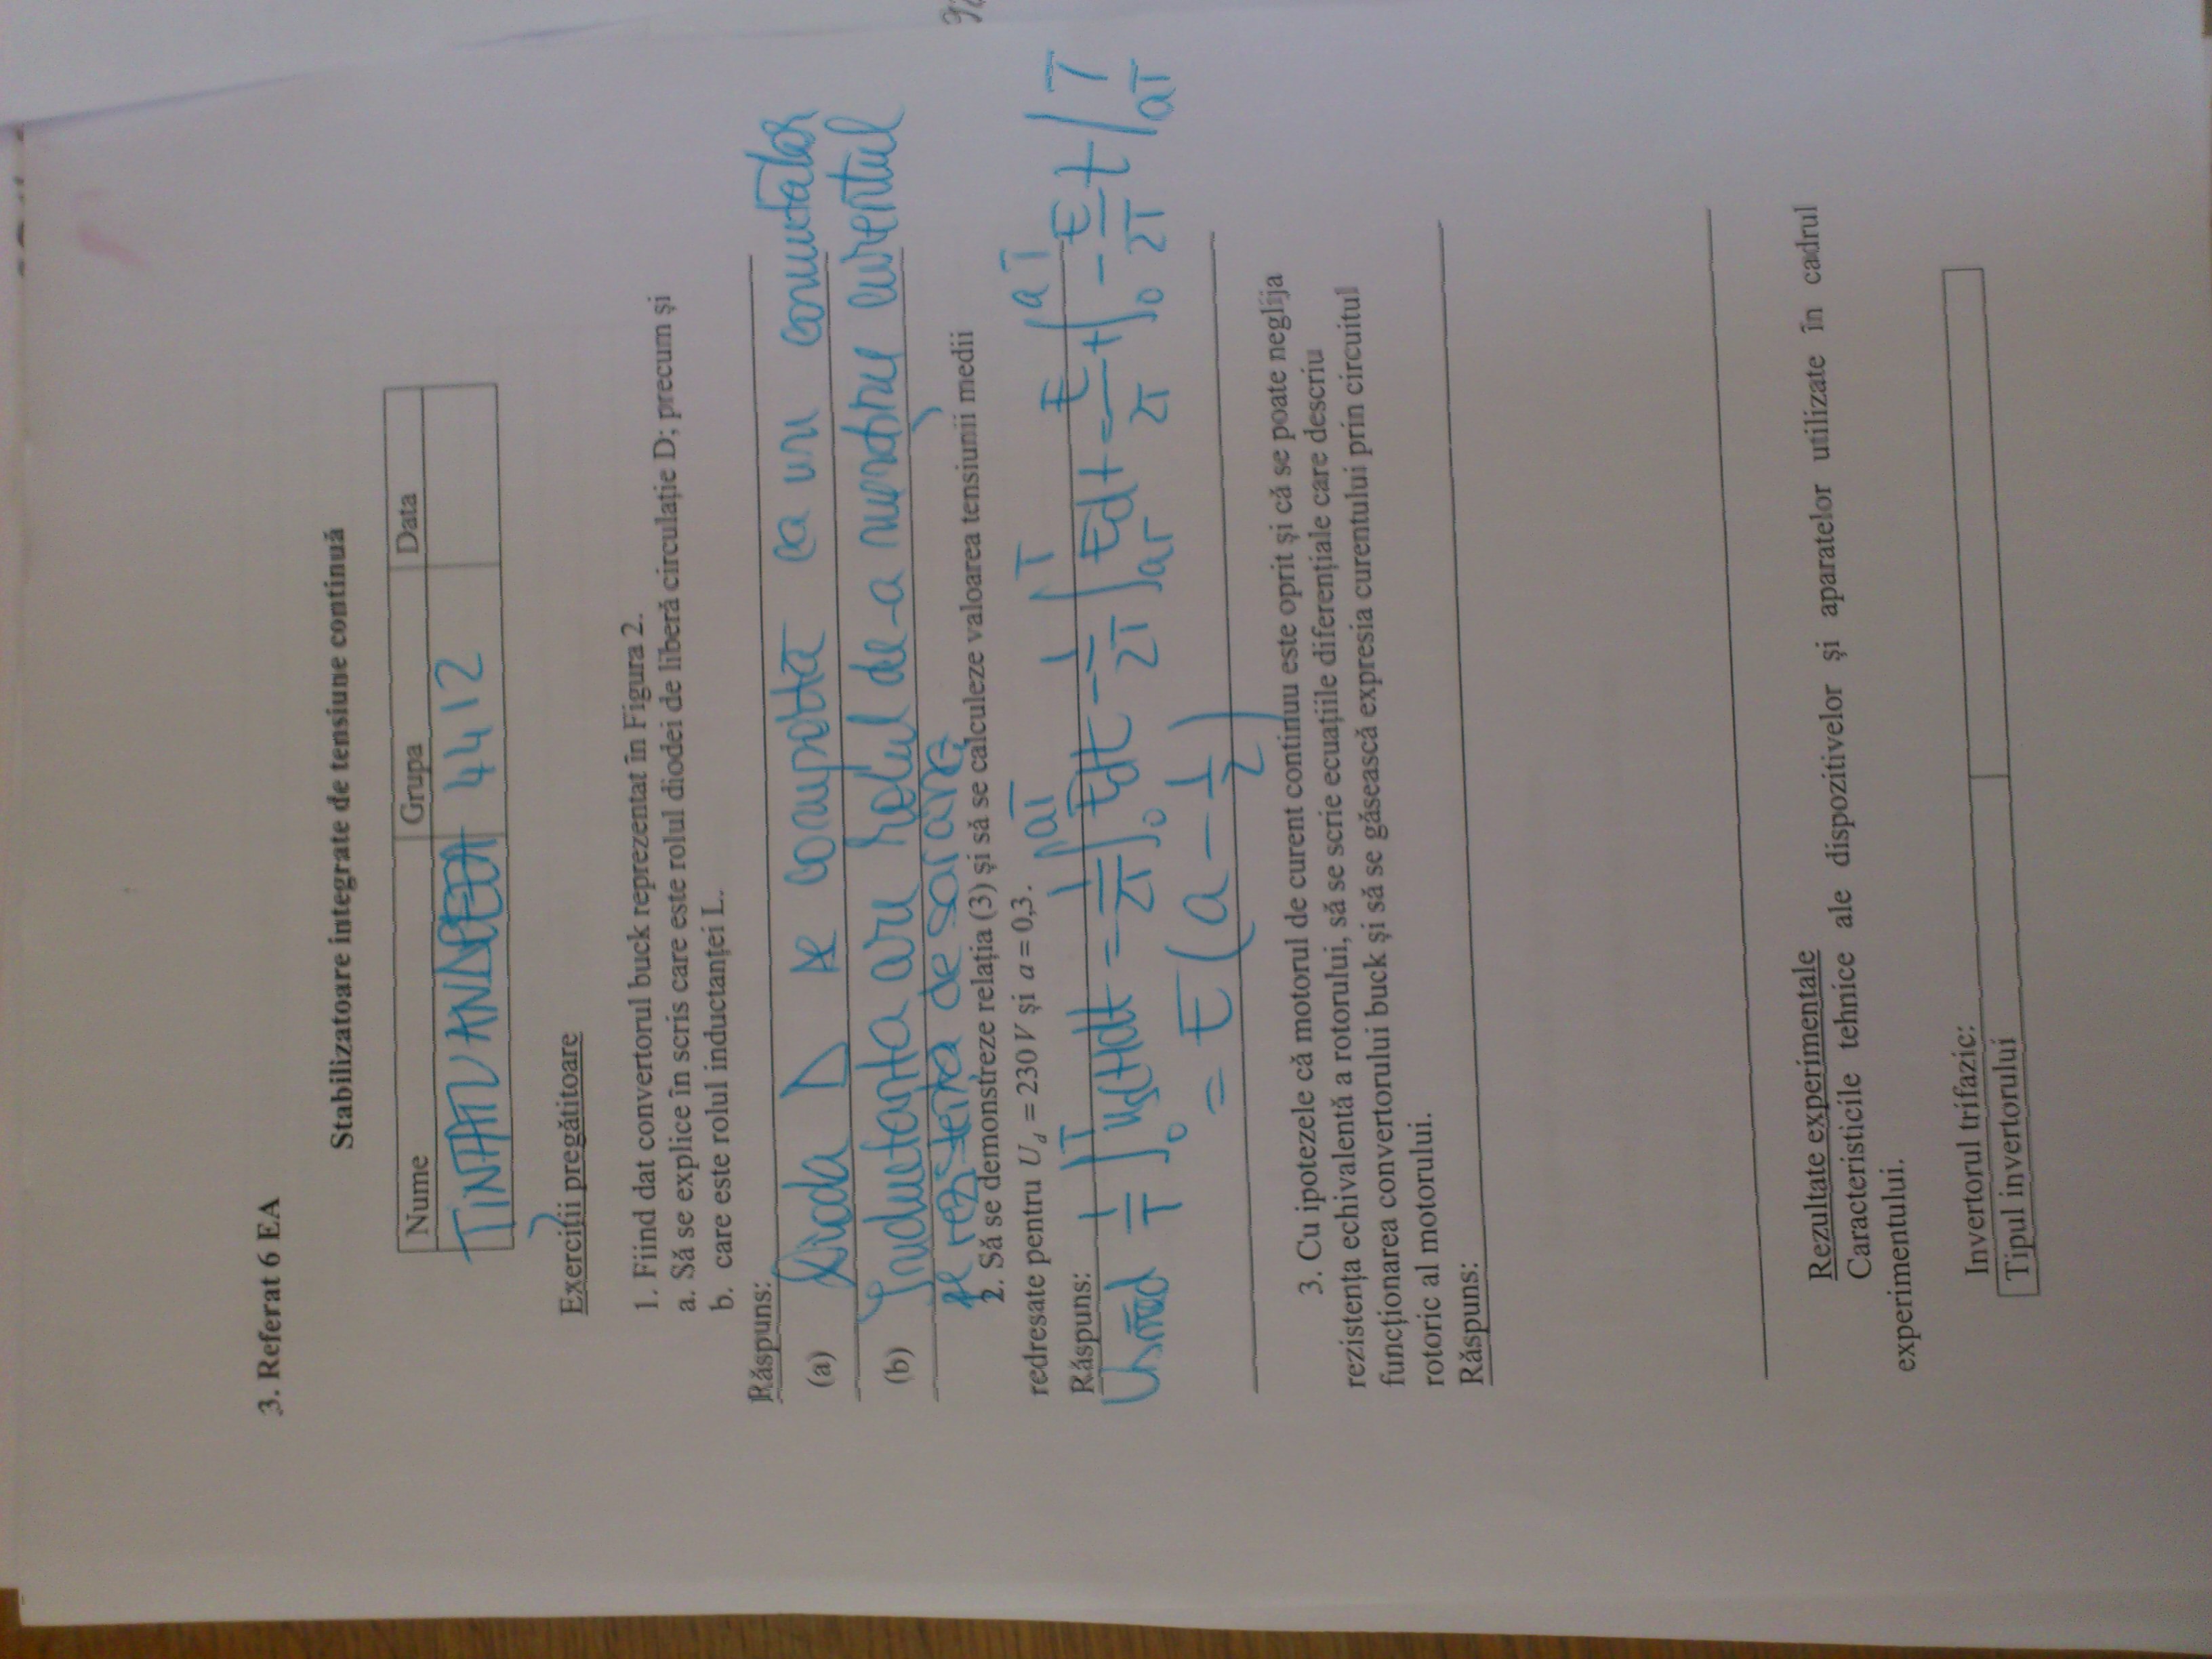 3. Referat 6 EA
Stabilizatoare integrate de tensiune continuă
Nume Grupa Data
4412
Exerciții pregătitoare
1. Fiind dat convertorul buck reprezentat în Figura 2.
a. Să se explice în scris care este rolul diodei de liberă circulație D; precum și
b. care este rolul inductanței L.
Răspuns:
(a) Dioda D se comportă ca un comutator
(b) Inductanța are rolul de-a menține curentul
pe rezistența de sarană
2. Să se demonstreze relația (3) și să se calculeze valoarea tensiunii medii
redresate pentru U_d = 230 V și a = 0,3.
Răspuns:
= 1/T ∫₀^T us(t)dt = 1/2T ∫₀^aT Edt - 1/2T ∫_aT^T Edt = E/2T t |₀^aT - E/2T t |_aT^T
= E (a - 1/2)
3. Cu ipotezele că motorul de curent continuu este oprit și că se poate neglija
rezistența echivalentă a rotorului, să se scrie ecuațiile diferențiale care descriu
funcționarea convertorului buck și să se găsească expresia curentului prin circuitul
rotoric al motorului.
Răspuns:
Rezultate experimentale
Caracteristicile tehnice ale dispozitivelor și aparatelor utilizate în cadrul
experimentului.
Invertorul trifazic:
Tipul invertorului